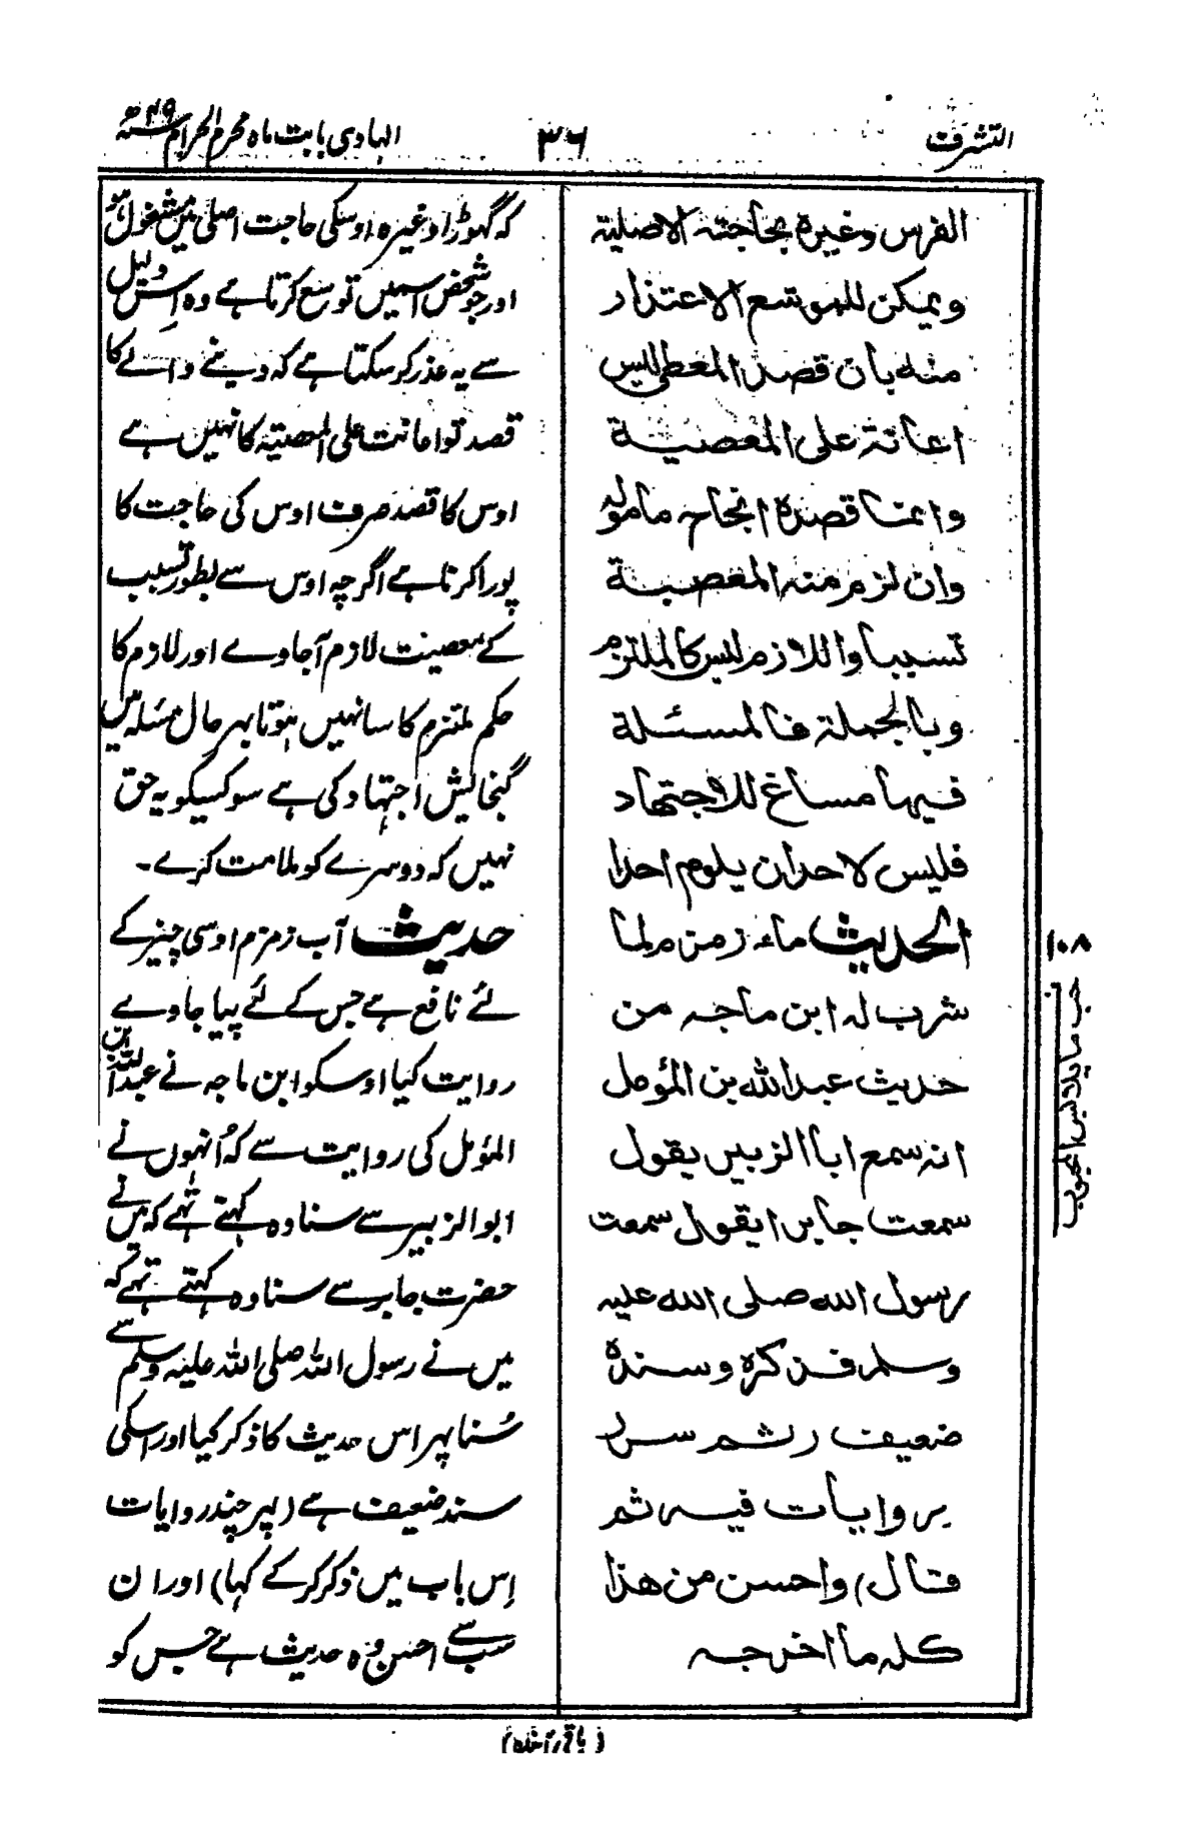 التشرف
۳۶
الہادی بابت ماہ محرم الحرام ۴۹ھ
الفرس وغیرہ بحاجتہ الاصلیۃ
ویمکن للموسّع الاعتذار
منہ بان قصد المعطی لیس
اعانۃ علی المعصیۃ
وانما قصدہ انجاح مامولہ
وان لزم منہ المعصیۃ
تسببا واللازم لیس کالملتزم
وبالجملۃ فالمسئلۃ
فیہا مساغ للاجتہاد
فلیس لاحد ان یلوم احدا
الحدیث ماء زمزم لما
شرب لہ ابن ماجہ من
حدیث عبداللہ بن المؤمل
انہ سمع ابا الزبیر یقول
سمعت جابرا یقول سمعت
رسول اللہ صلی اللہ علیہ
وسلم فذکرہ وسندہ
ضعیف (ثم سرد
روایات فیہ ثم
قال) واحسن من هذا
کلہ ما اخرجہ
کہ گھوڑا وغیرہ اوسکی حاجت اصلی میں مشغول ہو
اور جو شخص اسمیں توسع کرتا ہے وہ اِس دلیل
سے یہ عذر کر سکتا ہے کہ دینے والے کا
قصد تو اعانت علی المعصیۃ کا نہیں ہے
اوس کا قصد صرف اوس کی حاجت کا
پورا کرنا ہے اگرچہ اوس سے بطور تسبب
کے معصیت لازم آجاوے اور لازم کا
حکم ملتزم کا سا نہیں ہوتا بہر حال مسئلہ میں
گنجائش اجتہاد کی ہے سو کسیکو یہ حق
نہیں کہ دوسرے کو ملامت کرے۔
حدیث آب زمزم اوسی چیز کے
لئے نافع ہے جس کے لئے پیا جاوے
روایت کیا اوسکو ابن ماجہ نے عبداللہ بن
المؤمل کی روایت سے کہ اُنہوں نے
ابو الزبیر سے سنا وہ کہتے تھے کہ میں نے
حضرت جابر سے سنا وہ کہتے تھے کہ
میں نے رسول اللہ صلی اللہ علیہ وسلم سے
سُنا پہر اس حدیث کا ذکر کیا اور اسکی
سند ضعیف ہے (پہر چند روایات
اِس باب میں ذکر کرکے کہا) اور ان
سب سے احسن وہ حدیث ہے جس کو
۱۰۸
(باقی آئندہ)